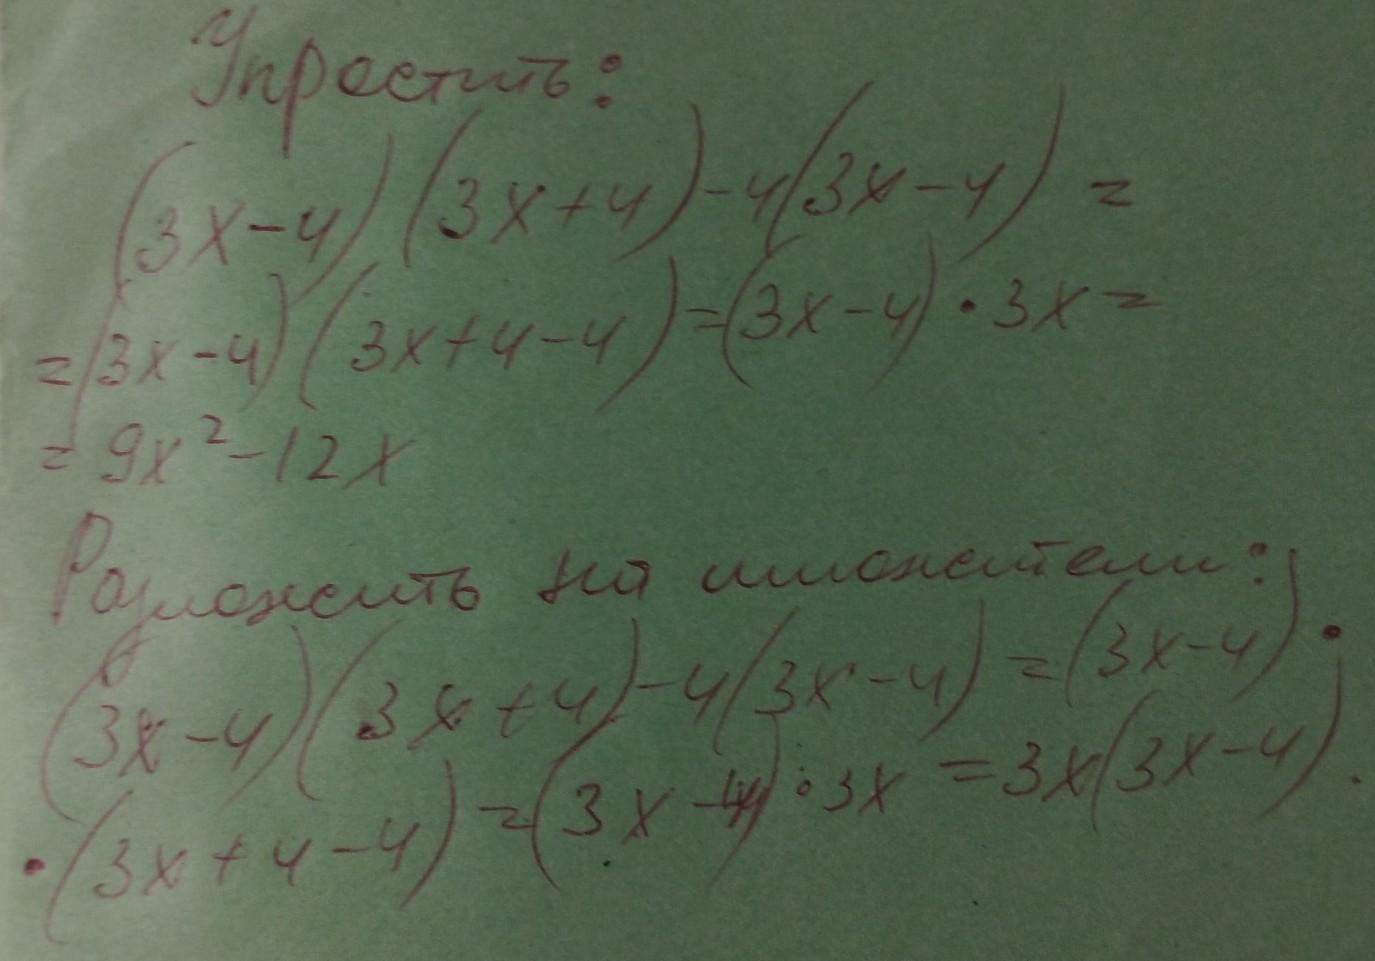 Упростить:
(3x-4)(3x+4)-4(3x-4)=
=(3x-4)(3x+4-4)=(3x-4)·3x=
=9x²-12x
Разложить на множители:
(3x-4)(3x+4)-4(3x-4)=(3x-4)·
·(3x+4-4)=(3x-4)·3x=3x(3x-4).